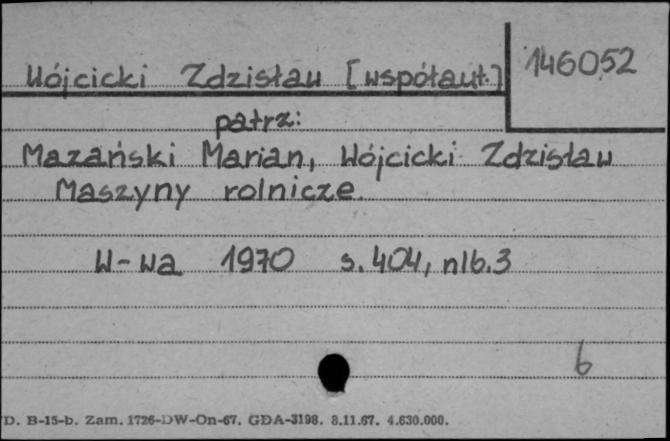 Wójcicki Zdzisław [współaut.]
146052
patrz:
Mazański Marian, Wójcicki Zdzisław
Maszyny rolnicze.
W-wa 1970 s. 404, nlb. 3
b
D. B-15-b. Zam. 1726-DW-On-67. GDA-3198. 8.11.67. 4.630.000.